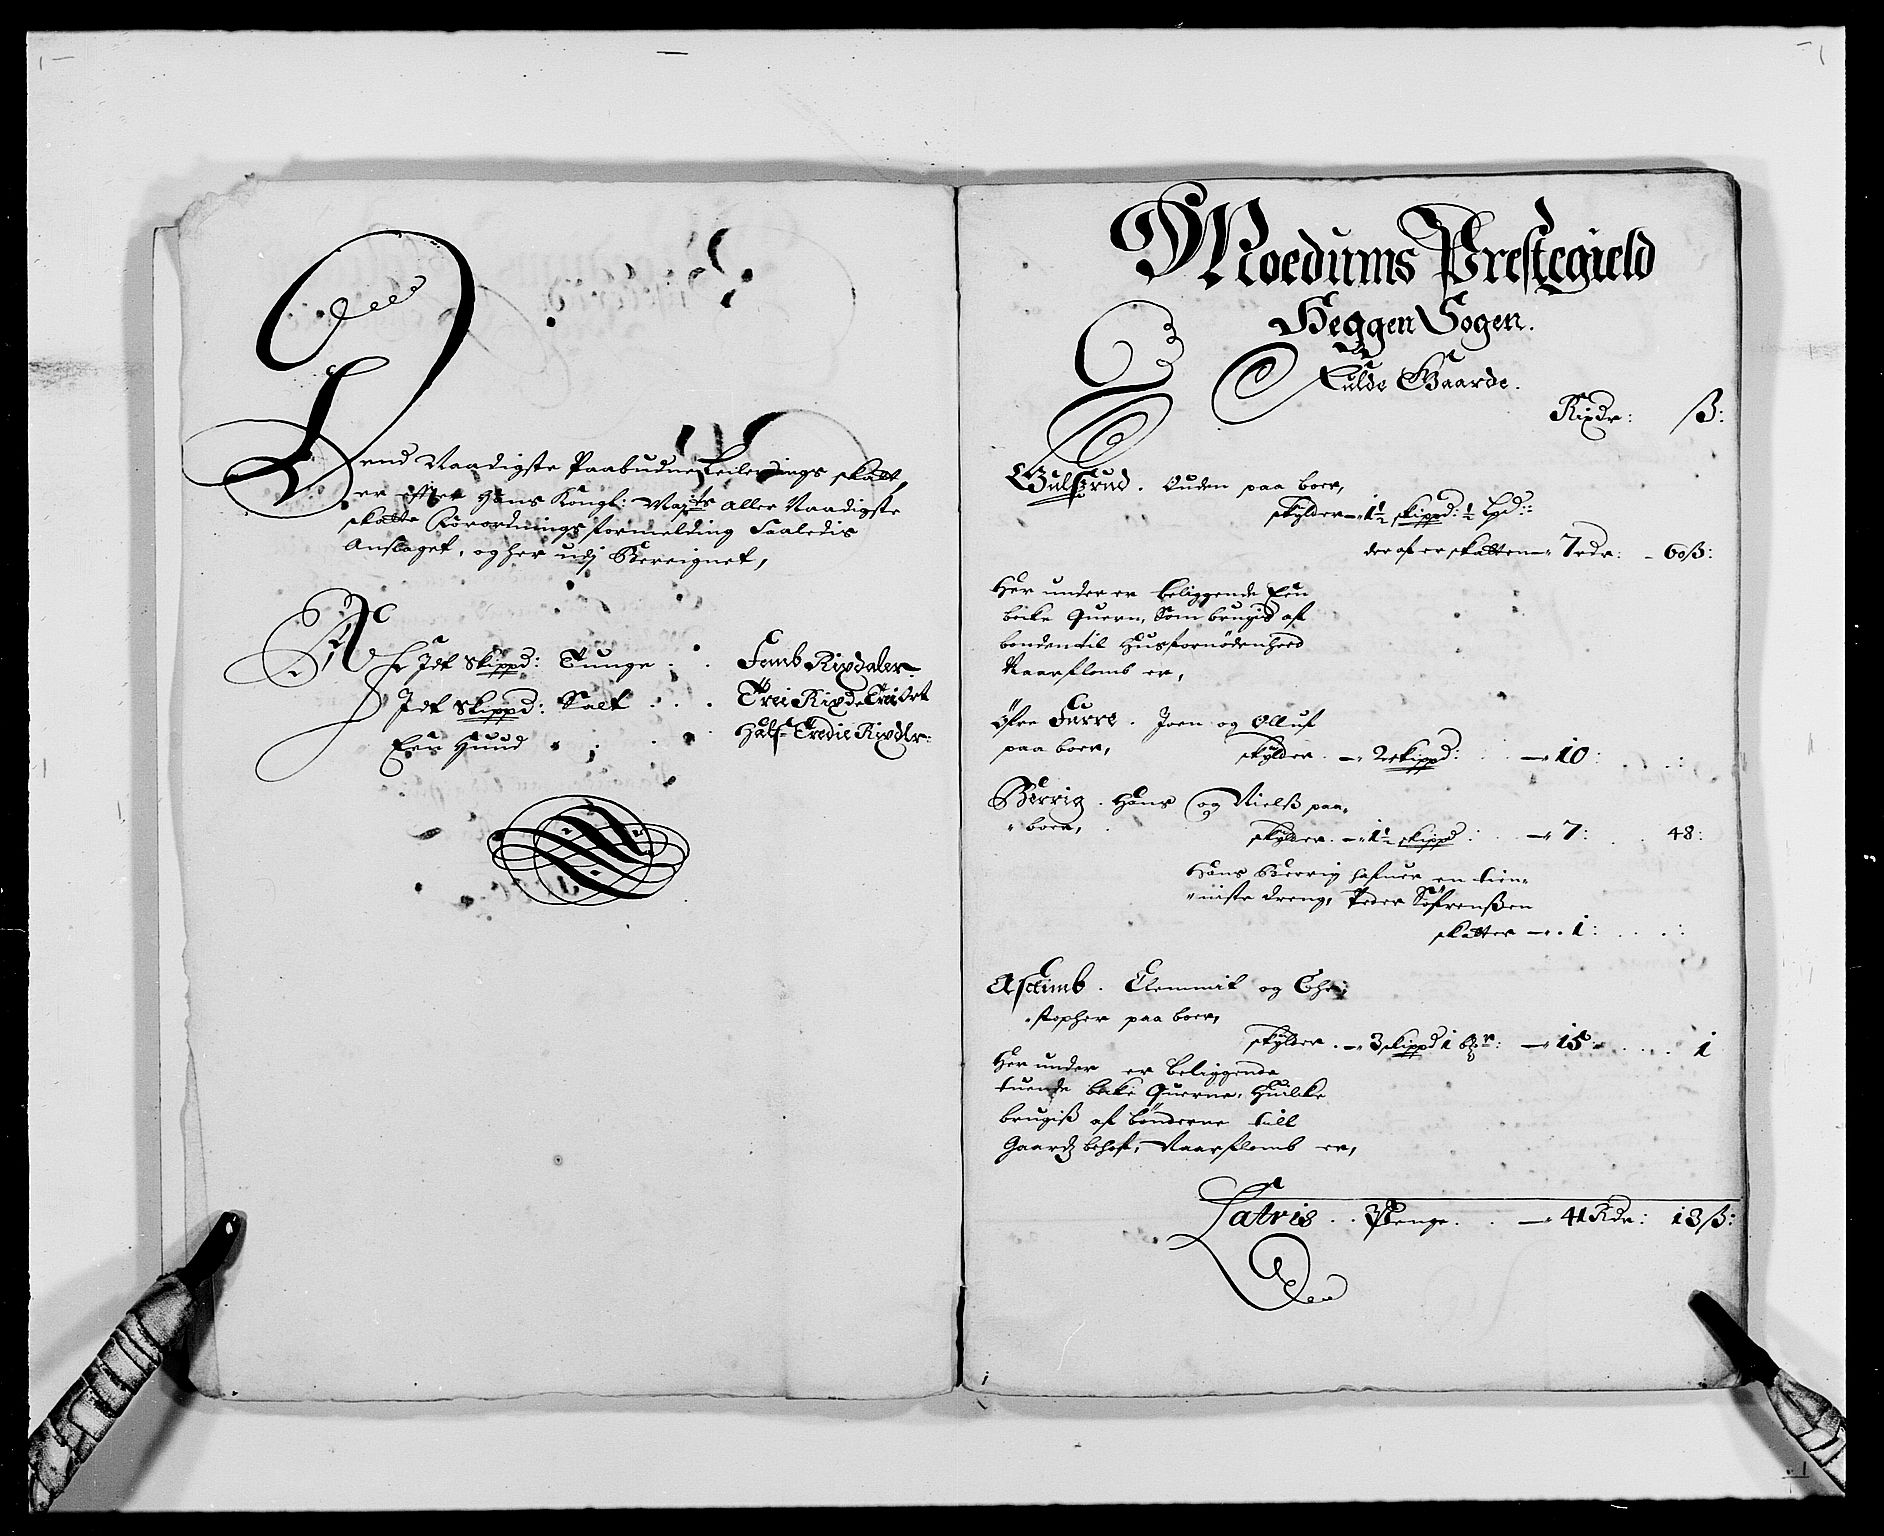 Dend Naadigste Paabudne Leilendings skatt,
er effter Hans Kongl: Maÿts aller Naadigste
skatte Forordnings formelding Saaledis
Anslaget, og her udj Bereignet,
Af Jdt Skippd: Tunge . . Femb Rixdaler
Jdt Skippd: Salt . . . Trei Rixdr Trei Ort
Een Huud . . . Half Tredie Rixdlr:
Moedums Prestegield
Heggen Sogen.
Fulde Gaarde.
Rixdr: ß:
Gulsrud. Ouden paa boer,
skylder - 1½ skippd: ½ Lpd:
der af er skatten - 7 rdr: - 60ß:
Her under er beliggende Een
becke Quern, Som brugis af
bonden til Husfornødenhed
Naar flomb er,
Öfre Furre. Joen og Olluf
paa boer,
skylder. - 2 skippd: . - 10: . . :
Berrig. Hans og Nielß paa
boer,
skylder. - 1½ skippd: . - 7: . . 48:
Hans Berrig hafuer en tien-
niste dreng, Peder Söfrenßen
skatter - 1: . . . :
Asklimb. Clemmit og Chri-
stopher paa boer,
skylder. - 3 skippd 1 - 15 . . . 1
Her under er beliggende
tuende becke Querne, Huilcke
brugiß af bönderne till
Gaardz behof, Naar flomb er,
Latris . . Penge. . - 41 Rdr: 13ß: